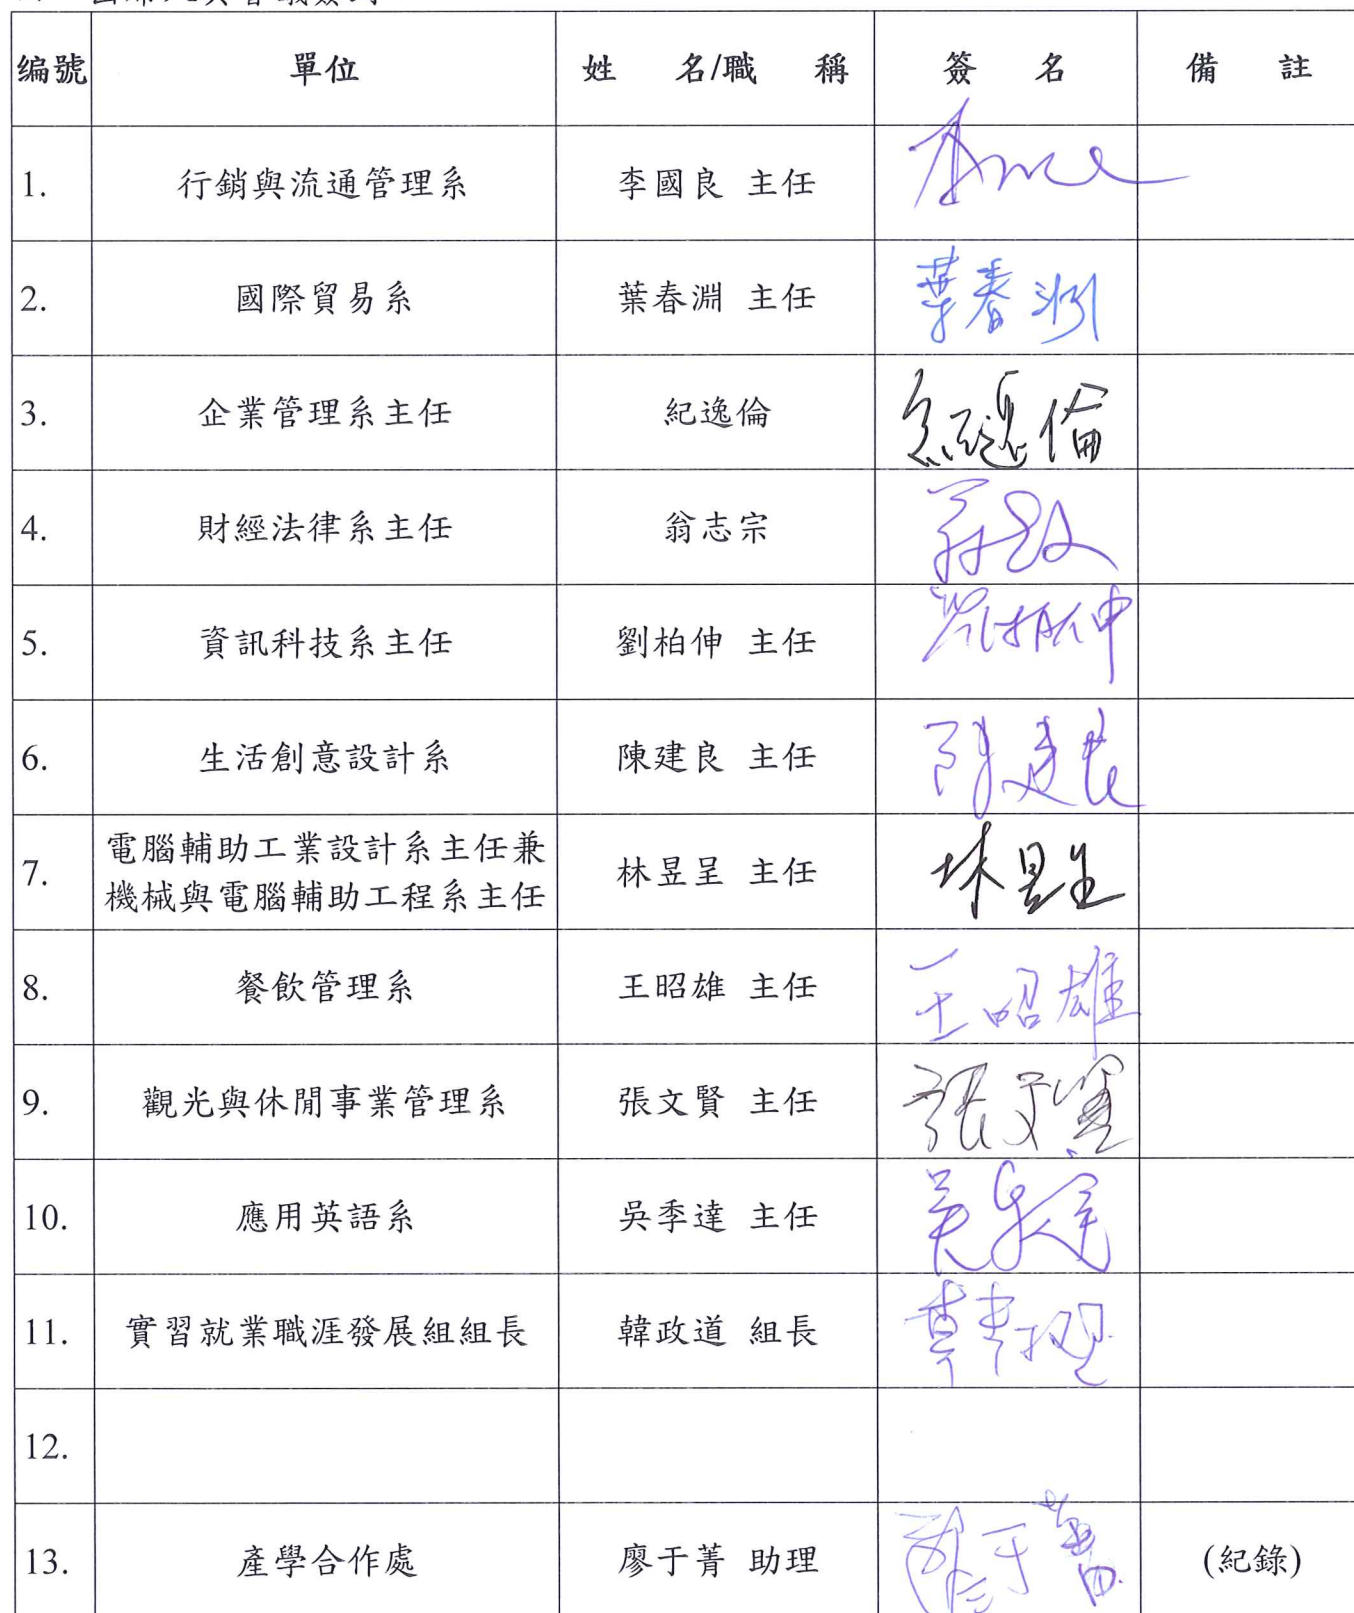 编號 單位 姓 名/職 稱 簽 名 備 註
1. 行銷與流通管理系 李國良 主任
2. 國際貿易系 葉春淵 主任 葉春渊
3. 企業管理系主任 紀逸倫 紀逸倫
4. 財經法律系主任 翁志宗
5. 資訊科技系主任 劉柏伸 主任
6. 生活創意設計系 陳建良 主任 陳建良
7. 電腦輔助工業設計系主任兼
機械與電腦輔助工程系主任 林昱呈 主任 林昱呈
8. 餐飲管理系 王昭雄 主任 王昭雄
9. 觀光與休閒事業管理系 張文賢 主任 張文賢
10. 應用英語系 吳季達 主任
11. 實習就業職涯發展組組長 韓政道 組長
12.
13. 產學合作處 廖于菁 助理 廖于菁 (紀錄)